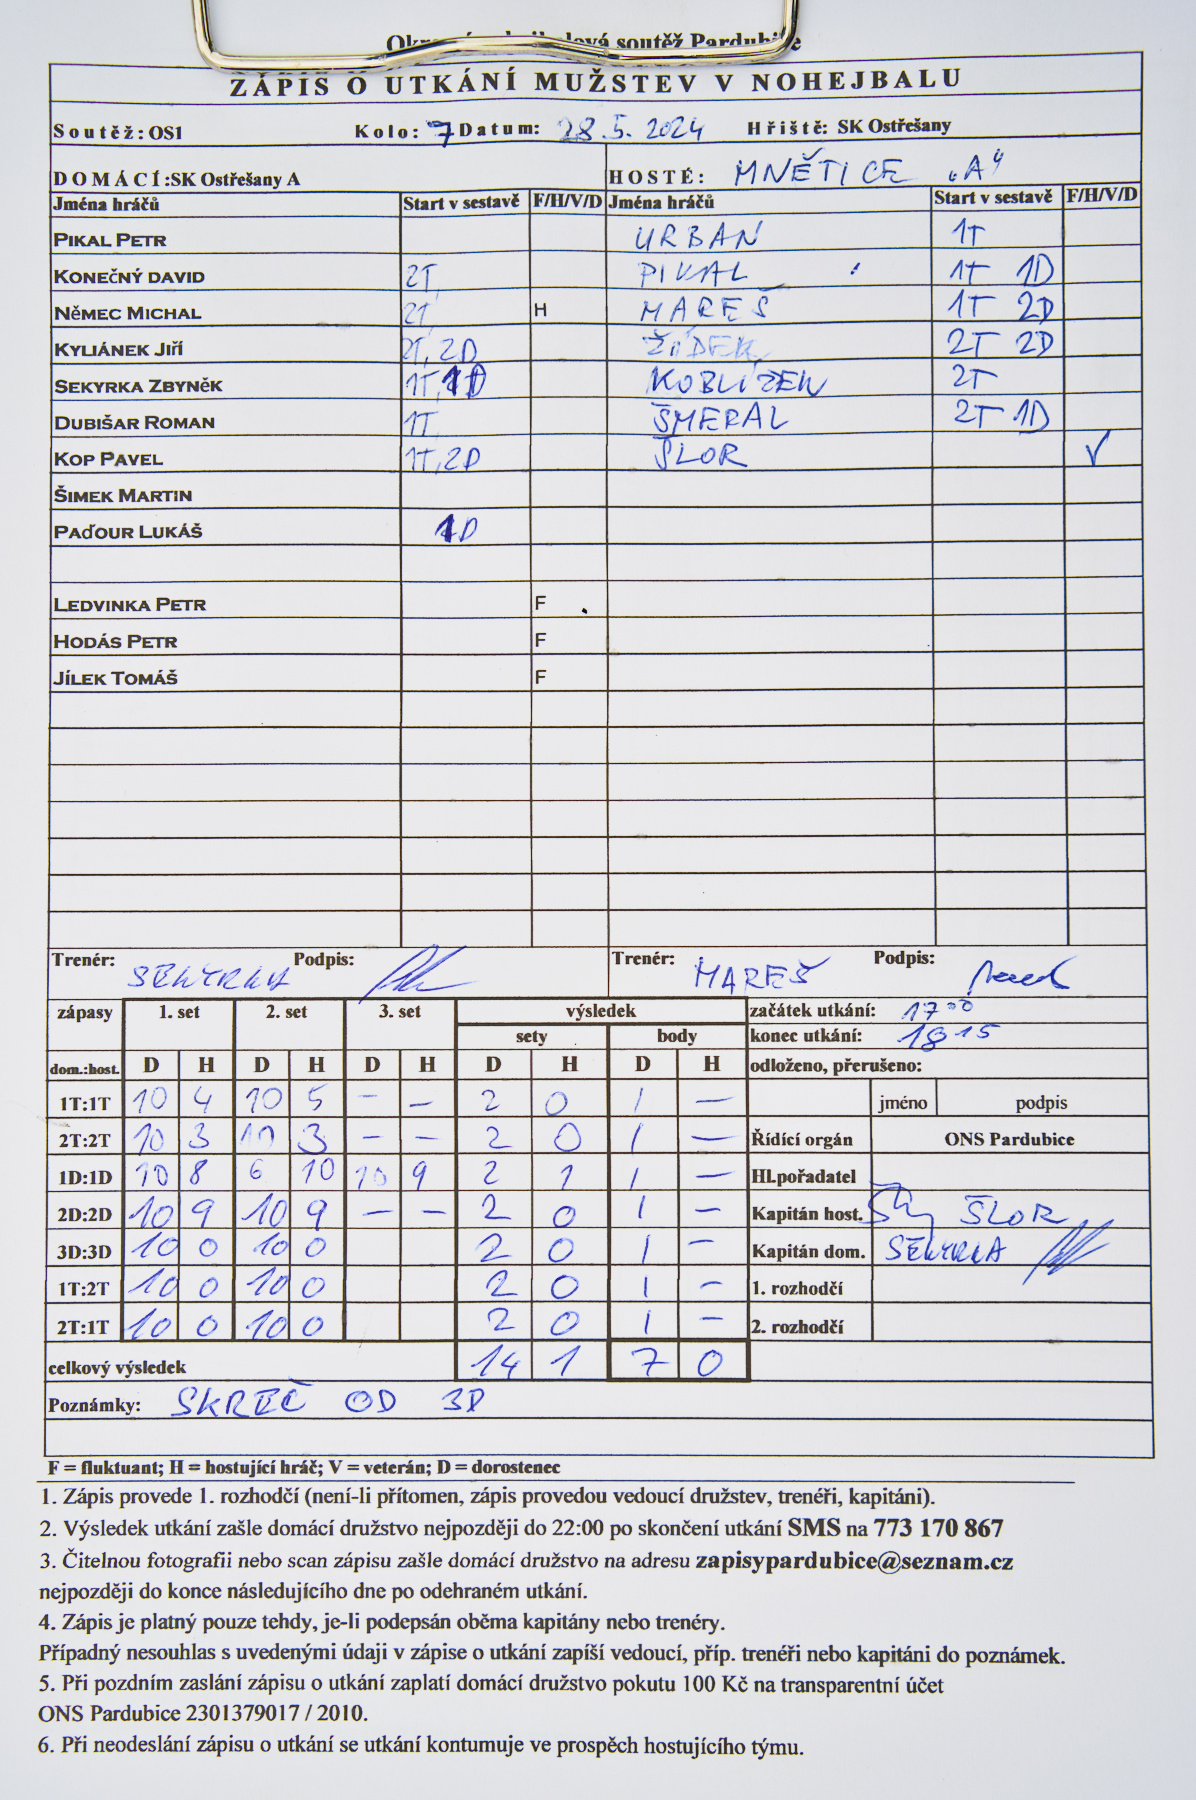 Okresní nohejbalová soutěž Pardubice
ZÁPIS O UTKÁNÍ MUŽSTEV V NOHEJBALU
Soutěž: OS1 Kolo: 7 Datum: 28.5. 2024 Hřiště: SK Ostřešany
DOMÁCÍ: SK Ostřešany A HOSTÉ: MNĚTICE „A"
Jména hráčů Start v sestavě F/H/V/D Jména hráčů Start v sestavě F/H/V/D
PIKAL PETR URBAN 1T
KONEČNÝ DAVID 2T, PIKAL 1T 1D
NĚMEC MICHAL 2T, H MAREŠ 1T 2D
KYLIÁNEK JIŘÍ 2T, 2D ŽÍDEK 2T 2D
SEKYRKA ZBYNĚK 1T, 1D KOBLÍŽEK 2T
DUBIŠAR ROMAN 1T ŠMERAL 2T 1D
KOP PAVEL 1T, 2D ŠLOR V
ŠIMEK MARTIN
PAĎOUR LUKÁŠ 1D
LEDVINKA PETR F
HODÁS PETR F
JÍLEK TOMÁŠ F
Trenér: SEKYRKA Podpis: Trenér: MAREŠ Podpis:
zápasy 1. set 2. set 3. set výsledek začátek utkání: 17 00
sety body konec utkání: 18 15
dom.:host. D H D H D H D H D H odloženo, přerušeno:
1T:1T 10 4 10 5 – – 2 0 1 – jméno podpis
2T:2T 10 3 10 3 – – 2 0 1 – Řídící orgán ONS Pardubice
1D:1D 10 8 6 10 10 9 2 1 1 – Hl.pořadatel
2D:2D 10 9 10 9 – – 2 0 1 – Kapitán host. ŠLOR
3D:3D 10 0 10 0 2 0 1 – Kapitán dom. SEKYRKA
1T:2T 10 0 10 0 2 0 1 – 1. rozhodčí
2T:1T 10 0 10 0 2 0 1 – 2. rozhodčí
celkový výsledek 14 1 7 0
Poznámky: SKREČ OD 3D
F = fluktuant; H = hostující hráč; V = veterán; D = dorostenec
1. Zápis provede 1. rozhodčí (není-li přítomen, zápis provedou vedoucí družstev, trenéři, kapitáni).
2. Výsledek utkání zašle domácí družstvo nejpozději do 22:00 po skončení utkání SMS na 773 170 867
3. Čitelnou fotografii nebo scan zápisu zašle domácí družstvo na adresu zapisypardubice@seznam.cz
nejpozději do konce následujícího dne po odehraném utkání.
4. Zápis je platný pouze tehdy, je-li podepsán oběma kapitány nebo trenéry.
Případný nesouhlas s uvedenými údaji v zápise o utkání zapíší vedoucí, příp. trenéři nebo kapitáni do poznámek.
5. Při pozdním zaslání zápisu o utkání zaplatí domácí družstvo pokutu 100 Kč na transparentní účet
ONS Pardubice 2301379017 / 2010.
6. Při neodeslání zápisu o utkání se utkání kontumuje ve prospěch hostujícího týmu.